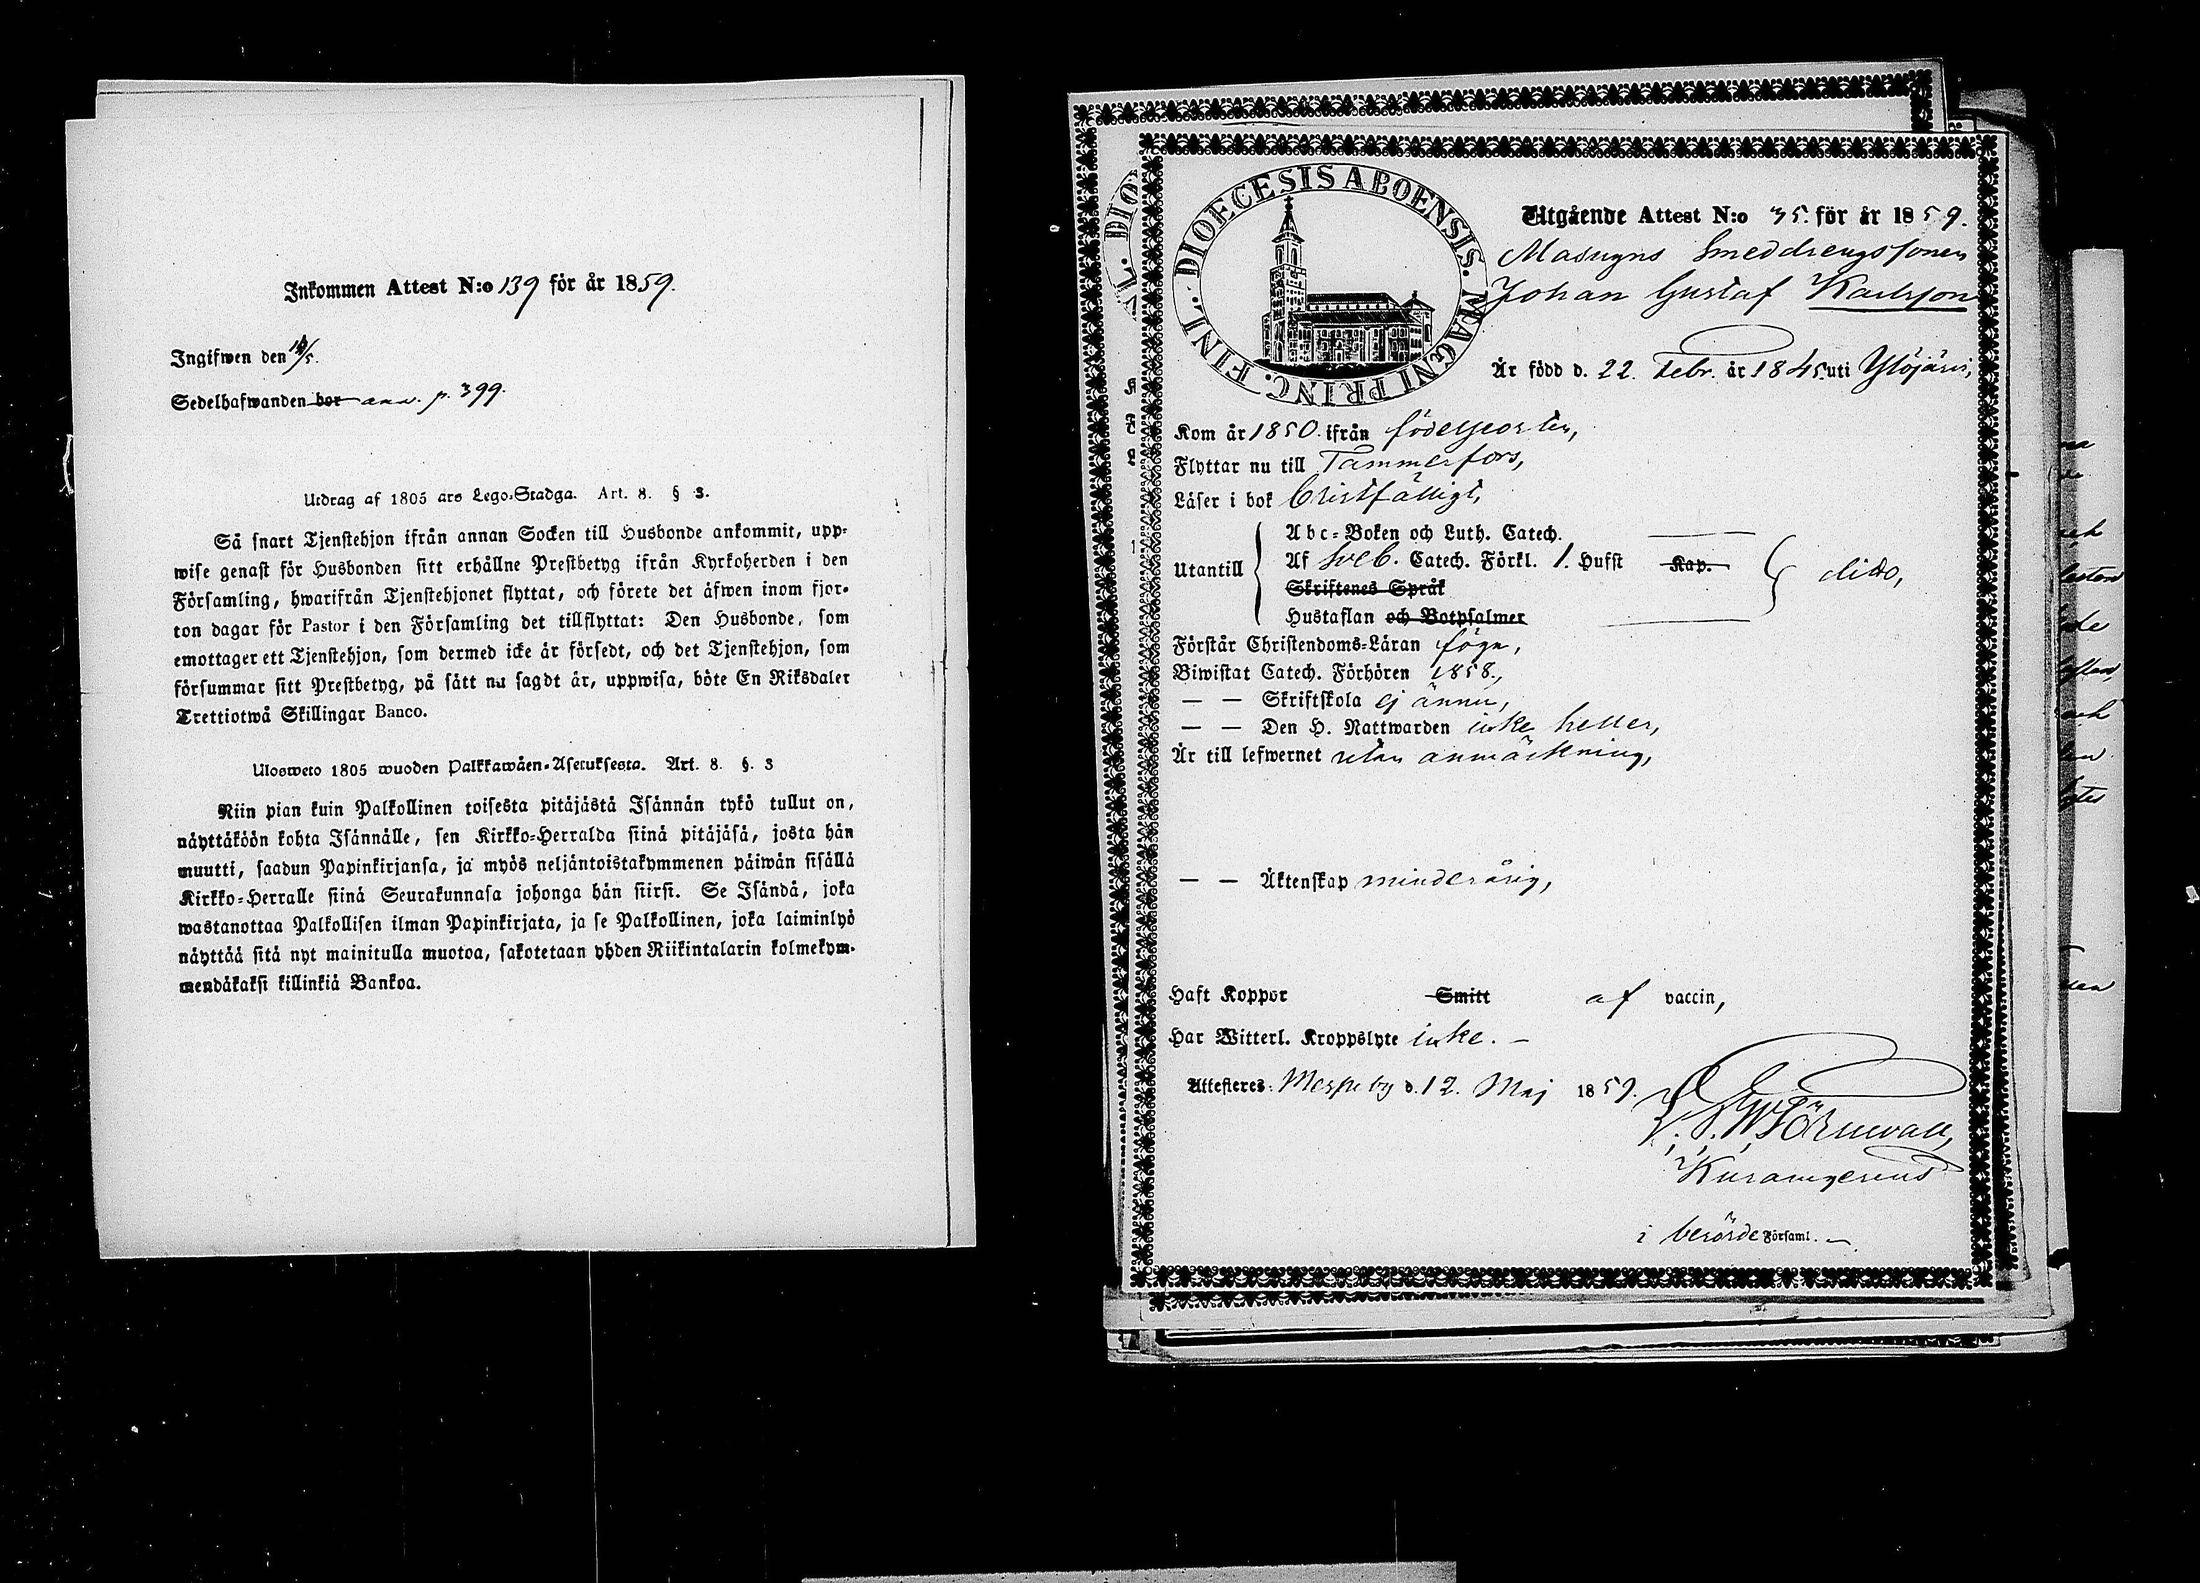 Inkommen Attest N:o 139 för år 1859.
Ingifwen den 14/5.
Sedelhafwanden bor ann. p. 399.
Utdrag af 1805 års Lego-Stadga. Art. 8. § 3.
Så snart Tjenstehjon ifrån annan Socken till Husbonde ankommit, upp-
wise genast för Husbonden sitt erhållne Prestbetyg ifrån Kyrkoherden i den
Församling, hwarifrån Tjenstehjonet flyttat, och förete det äfwen inom fjor-
ton dagar för Pastor i den Församling det tillflyttat: Den Husbonde, som
emottager ett Tjenstehjon, som dermed icke är försedt, och det Tjenstehjon, som
försummar sitt Prestbetyg, på sätt nu sagdt är, uppwisa, böte En Riksdaler
Trettiotwå Skillingar Banco.
Ulosweto 1805 wuoden Palkkawäen-Asetuksesta. Art. 8. §. 3
Niin pian kuin Palkollinen toisesta pitäjästä Isännän tykö tullut on,
näyttäköön kohta Isännälle, sen Kirkko-Herralda siinä pitäjäsä, josta hän
muutti, saadun Papinkirjansa, ja myös neljäntoistakymmenen päiwän sisällä
Kirkko-Herralle siinä Seurakunnasa johonga hän siirsi. Se Isändä, joka
wastanottaa Palkollisen ilman Papinkirjata, ja se Palkollinen, joka laiminlyö
näyttää sitä nyt mainitulla muotoa, sakotetaan yhden Riikintalarin kolmekym-
mendäkaksi killinkiä Bankoa.
DIOECESIS ABOENSIS. MAGNI PRINC. FINL.
Utgående Attest N:o 35 för år 1859.
Masugns Smeddrengssonen
Johan Gustaf Karlsson
Är född d. 22. Febr. år 1845. uti Ylöjärvi,
Kom år 1850. ifrån födelseorten,
Flyttar nu till Tammerfors,
Läser i bok bristfälligt,
Abc-Boken och Luth. Catech.
Utantill Af Sveb. Catech. Förkl. 1. Hufst Kap. dito,
Skriftenes Språk
Hustaflan och Botpsalmer
Förstår Christendoms-Läran föga,
Biwistat Catech. Förhören 1858.,
— — Skriftskola ej ännu,
— — Den H. Nattwarden icke heller,
Är till lefwernet utan anmärkning,
— — Äktenskap minderårig,
Haft Koppor Smitt af vaccin,
Har Witterl. Kroppslyte icke. —
Attesteres: Messuby d. 12. Maj 1859.
Törnwall,
i berörde Församl. —